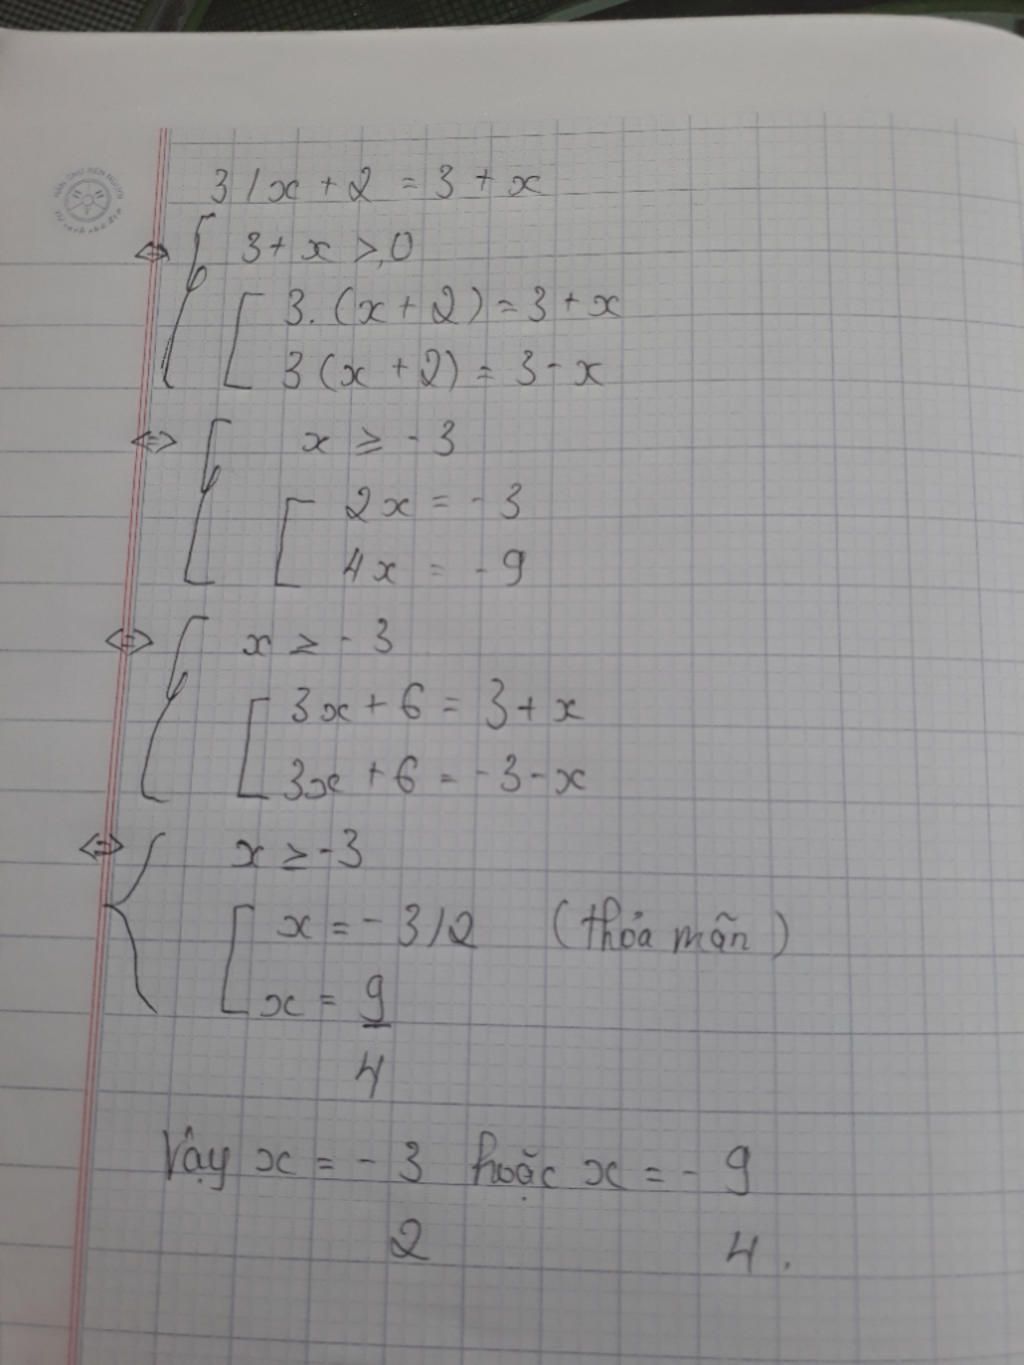 3/x + 2 = 3 + x
⇔ { 3 + x ≥ 0
[ 3.(x + 2) = 3 + x
3(x + 2) = 3 - x
⇔ { x ≥ - 3
[ 2x = - 3
4x = - 9
⇔ { x ≥ - 3
[ 3x + 6 = 3 + x
3x + 6 = - 3 - x
⇔ { x ≥ -3
[ x = - 3/2 (thỏa mãn)
x = 9
4
Vậy x = - 3 hoặc x = - 9
2 4.